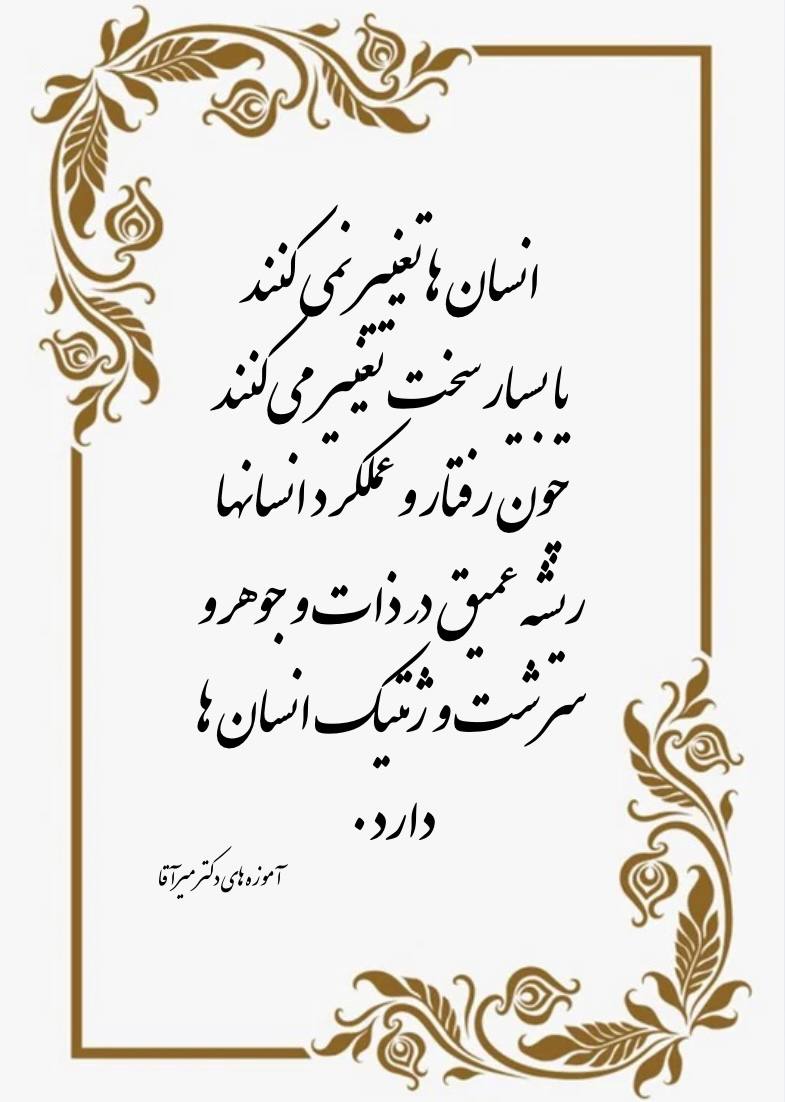 انسان ها تغییر نمی کنند
یا بسیار سخت تغییر می کنند
چون رفتار و عملکرد انسانها
ریشه عمیق در ذات و جوهر و
سرشت و ژنتیک انسان ها
دارد.
آموزه های دکتر میرآقا